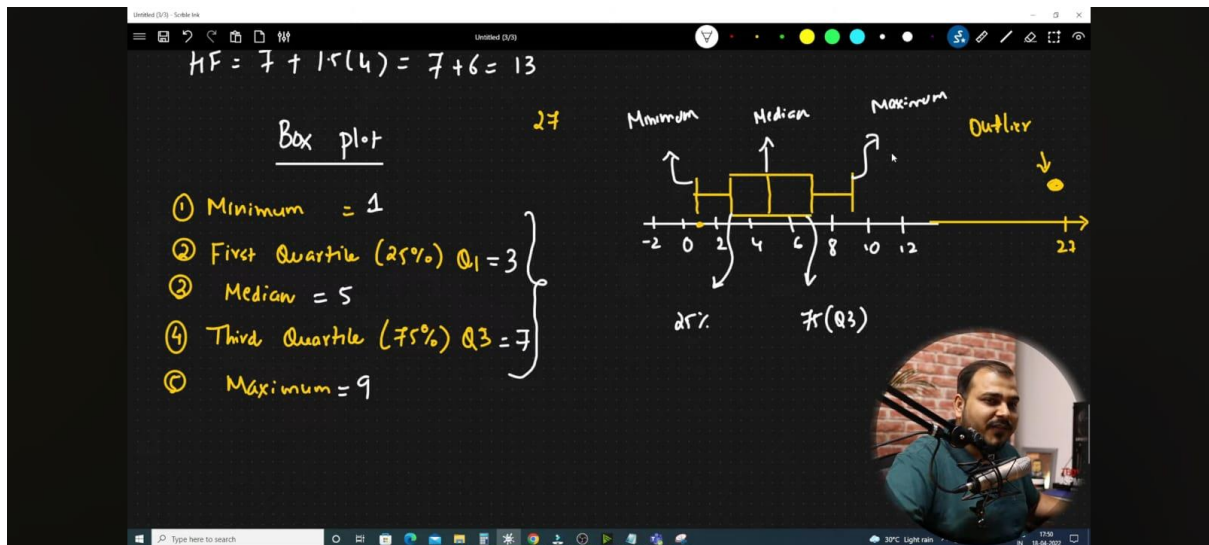 Untitled (3/3) - Scribble Ink
Untitled (3/3)
HF = 7 + 1.5(4) = 7+6 = 13
27
Box plot
① Minimum = 1
② First Quartile (25%) Q1 = 3
③ Median = 5
④ Third Quartile (75%) Q3 = 7
⑤ Maximum = 9
Minimum
Median
Maximum
Outlier
-2 0 2 4 6 8 10 12 27
25%
75(Q3)
Type here to search
30°C Light rain
17:50
IN
18-04-2022